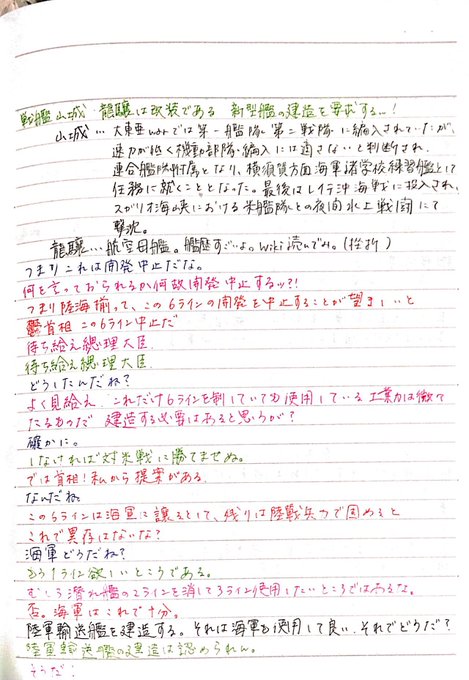 戦艦 山城 龍驤は改装である 新型艦の建造を要求する…!
山城…大東亜warでは第一艦隊第二戦隊に編入されていたが、
速力が低く機動部隊編入には適さないと判断され、
連合艦隊附属となり、横須賀方面海軍諸学校練習艦として
任務に就くこととなった。最後はレイテ沖海戦に投入され、
スガリオ海峡における米艦隊との夜間水上戦闘にて
撃沈。
龍驤…航空母艦。艦歴すごいよ。Wiki読んでみ。(挫折)
つまりこれは開発中止だな。
何を言っておられるか何故開発中止するッ?!
つまり陸海揃って、この6ラインの開発を中止することが望ましいと
首相 この6ライン中止だ
待ち給え總理大臣
待ち給え總理大臣
どうしたんだね?
よく見給え これだけ6ラインを割いていても使用している工業力は微々
たるものだ 建造する必要はあると思うが?
確かに。
しなければ対米戦に勝てませぬ。
では首相!私から提案がある
なんだね
この5ラインは海軍に譲るとして、残りは陸戦兵力で固めると
これで異存はないな?
海軍どうだね?
もう1ライン欲しいところである。
むしろ潜水艦の2ラインを消して3ライン使用したいところではあるな。
否。海軍はこれで十分。
陸軍輸送艦を建造する。それは海軍も使用して良い。それでどうだ?
陸軍輸送艦の建造は認められん。
そうだ!